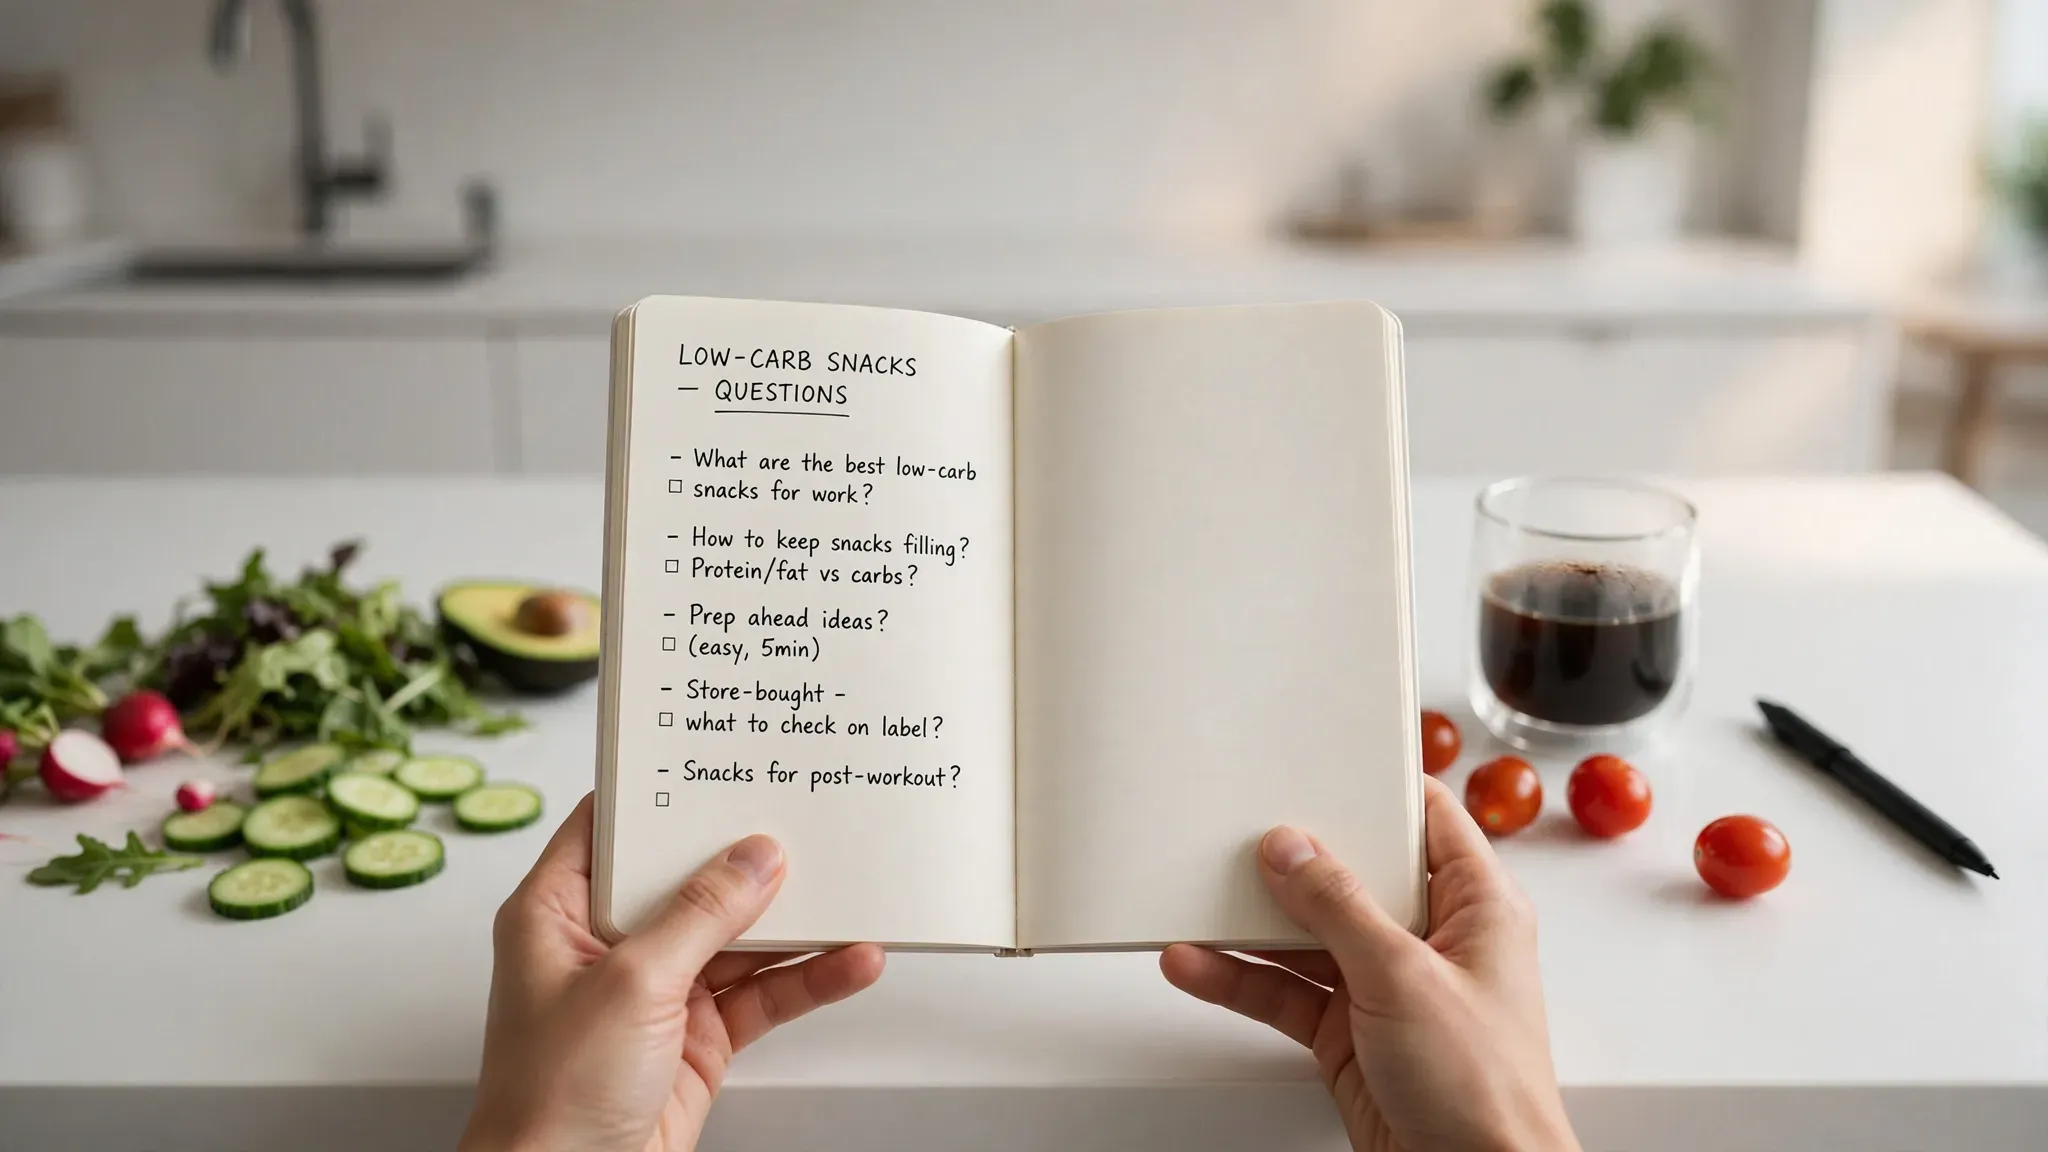 LOW-CARB SNACKS
— QUESTIONS
- What are the best low-carb
☐ snacks for work?
- How to keep snacks filling?
☐ Protein/fat vs carbs?
- Prep ahead ideas?
☐ (easy, 5min)
- Store-bought -
☐ what to check on label?
- Snacks for post-workout?
☐